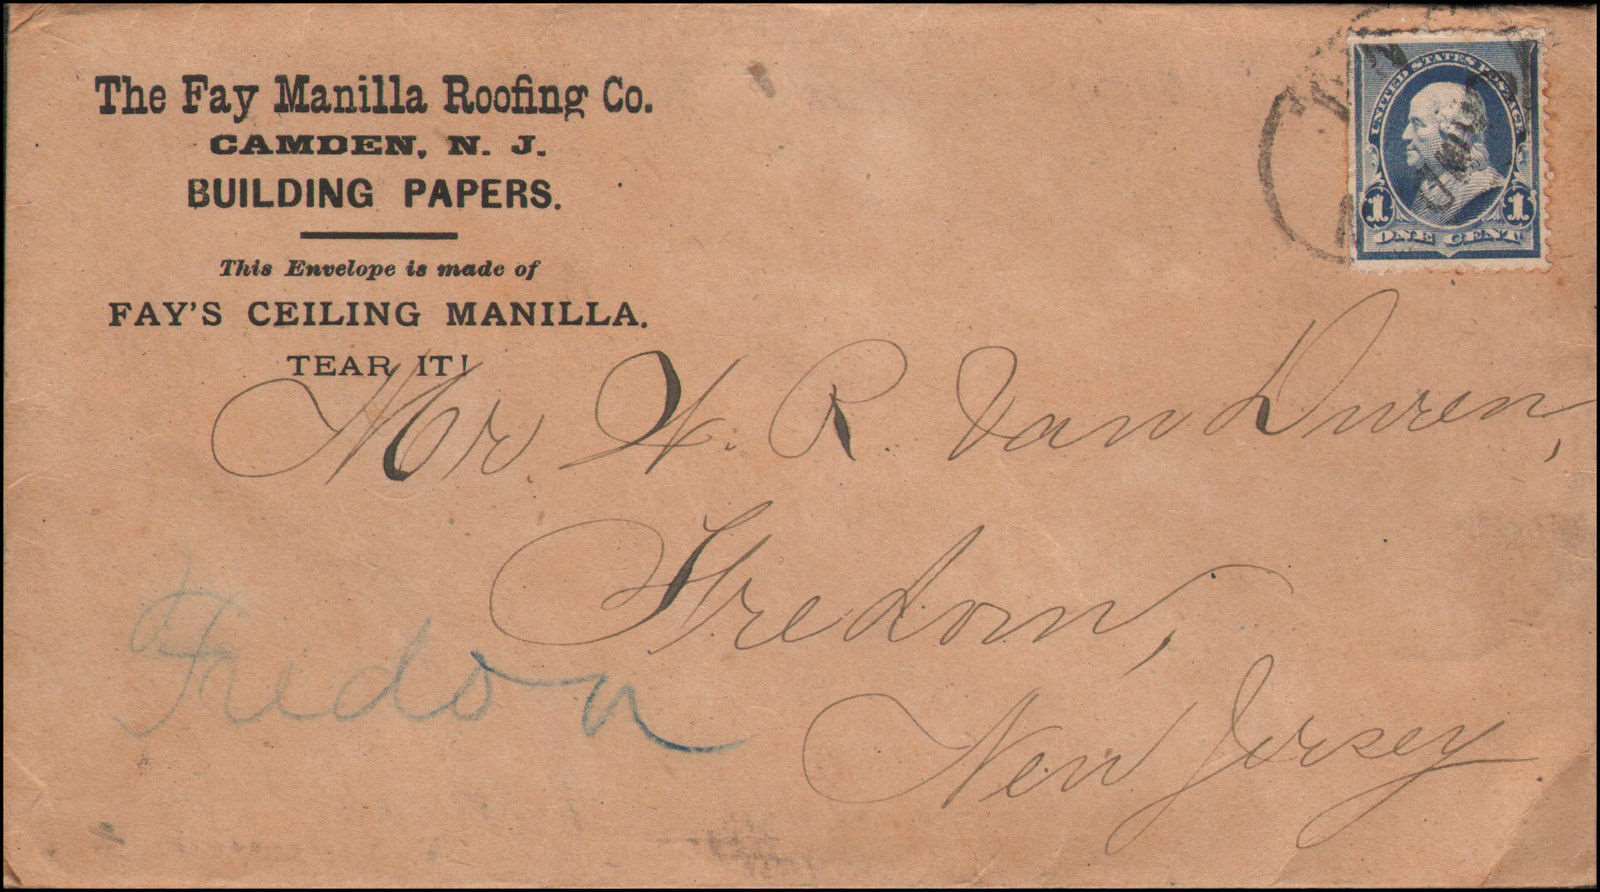 The Fay Manilla Roofing Co.
CAMDEN, N. J.
BUILDING PAPERS.
This Envelope is made of
FAY'S CEILING MANILLA.
TEAR IT!
UNITED STATES POSTAGE
1 1
ONE CENT
Mr. R. Van Duren,
Fredom,
New Jersey
Fredon